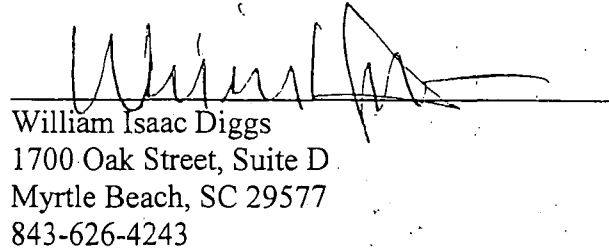 William Isaac Diggs
1700 Oak Street, Suite D
Myrtle Beach, SC 29577
843-626-4243